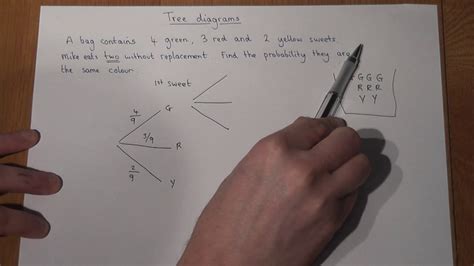 Tree diagrams
A bag contains 4 green, 3 red and 2 yellow sweets.
Mike eats two without replacement. Find the probability they are
the same colour.
1st sweet
4/9
G
3/9
R
2/9
Y
G G G
R R R
Y Y